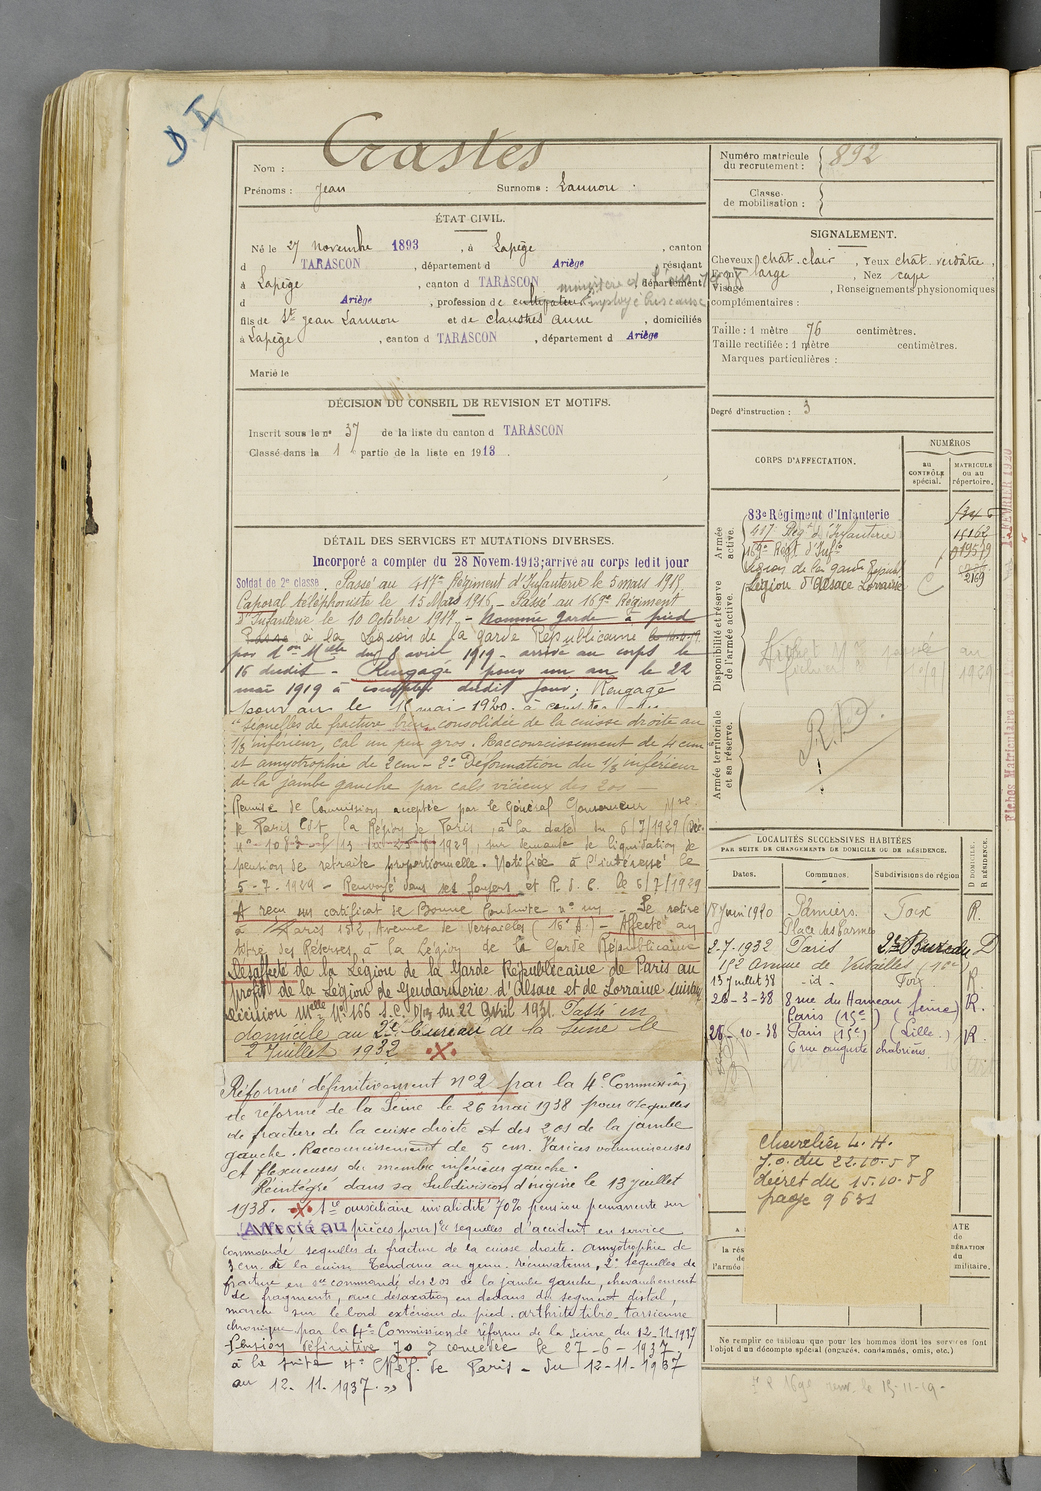 D.I
Nom : Crastes
Prénoms : Jean Surnoms : Lannou.
ÉTAT CIVIL.
Né le 27 novembre 1893, à Lapège, canton
d TARASCON, département d Ariège, résidant
à Lapège, canton d TARASCON, département
d Ariège, profession de cultivateur
fils de St Jean Lannou et de Claustres Anne, domiciliés
à Lapège, canton d TARASCON, département d Ariège
Marié le
DÉCISION DU CONSEIL DE REVISION ET MOTIFS.
Inscrit sous le n° 37 de la liste du canton d TARASCON
Classé dans la 1 partie de la liste en 1913.
DÉTAIL DES SERVICES ET MUTATIONS DIVERSES.
Incorporé à compter du 28 Novem. 1913; arrivé au corps ledit jour
Soldat de 2e classe. Passé au 417e Régiment d'Infanterie le 5 mars 1915
Caporal téléphoniste le 15 Mars 1916 - Passé au 169e Régiment
d'Infanterie le 10 Octobre 1917 - Nommé garde à pied
à la Légion de la Garde Républicaine
par don Mlle du 8 avril 1919 - arrivé au corps le
16 dudit - Rengagé pour un an le 22
mai 1919 à compter dudit jour; Rengagé
pour un an le mai 1920. à compter du
1° Séquelles de fracture bien consolidée de la cuisse droite au
1/3 inférieur, cal un peu gros. Raccourcissement de 4 cm
et amyotrophie de 2 cm - 2° Déformation du 1/3 inférieur
de la jambe gauche par cals vicieux des 2 os -
Remise de Commission acceptée par le Général Gouverneur Mre
de Paris Cdt la Région de Paris, à la date du 6/7/1929 (Déc.
n° 1083 1929, sur demande de liquidation de
pension de retraite proportionnelle. Notifiée à l'intéressé le
5-7-1929 - Renvoyé dans ses foyers et R.d.C. le 6/7/1929
A reçu un certificat de Bonne Conduite n° un - Se retire
à Paris 152, Avenue de Versailles (16e A.) - Affecté au
titre des Réserves, à la Légion de la Garde Républicaine
Désaffecté de la Légion de la Garde Républicaine de Paris au
profit de la Légion de Gendarmerie d'Alsace et de Lorraine suivant
décision Mlle N° 166 du 22 Avril 1931. Passé en
domicile au 2e bureau de la Seine le
2 Juillet 1932
Réformé définitivement n°2 par la 4e Commission
de réforme de la Seine le 26 mai 1938 pour séquelles
de fracture de la cuisse droite et des 2 os de la jambe
gauche. Raccourcissement de 5 cm. Varices volumineuses
et flexueuses du membre inférieur gauche.
Réintégré dans sa Subdivision d'origine le 13 juillet
1938. invalidité 70% pension permanente sur
Affecté au pièces pour 1° séquelles d'accident en service
commandé séquelles de fracture de la cuisse droite. amyotrophie de
3 cm. de la cuisse Tendance au genu recurvatum, 2° séquelles de
fracture en sce commandé des 2 os de la jambe gauche, chevauchement
de fragments, avec désaxation en dedans du segment distal,
marche sur le bord extérieur du pied. arthrite tibio tarsienne
chronique par la 4e Commission de réforme de la Seine du 12-11-1937
Pension définitive 70 % concédée le 27-6-1937
à la suite de Paris - du 12-11-1937
au 12-11-1937.»
Numéro matricule
du recrutement : 892
Classe
de mobilisation :
SIGNALEMENT.
Cheveux chât. clair, Yeux chât. verdâtre,
Front large, Nez
Visage , Renseignements physionomiques
complémentaires :
Taille : 1 mètre 76 centimètres.
Taille rectifiée : 1 mètre centimètres.
Marques particulières :
Degré d'instruction : 3
CORPS D'AFFECTATION.
NUMÉROS
au
CONTRÔLE
spécial.
MATRICULE
ou au
répertoire.
Armée
active.
83e Régiment d'Infanterie
417e Régt d'Infanterie 15162
169e Régt d'Infie
Légion de la garde Répub
Légion d'Alsace Lorraine C 2169
Disponibilité et réserve
de l'armée active.
Armée territoriale
et sa réserve.
LOCALITÉS SUCCESSIVES HABITÉES
PAR SUITE DE CHANGEMENTS DE DOMICILE OU DE RÉSIDENCE.
Dates. Communes. Subdivisions de région D DOMICILE. R RÉSIDENCE.
18 Juin 1920 Pamiers Foix R.
Place des Carmes
2-7-1932 Paris 2e Bureau D
152 Avenue de Versailles
13 juillet 38 - id - Foix R
28-3-38 8 rue du Hameau (Seine) R.
Paris (15e)
26-10-38 Paris (15e) (Lille.) R.
6 rue auguste chabrières.
Chevalier L.H.
J.O. du 22.10.58
décret du 15.10.58
page 9631
Ne remplir ce tableau que pour les hommes dont les services font
l'objet d'un décompte spécial (engagés, condamnés, omis, etc.)